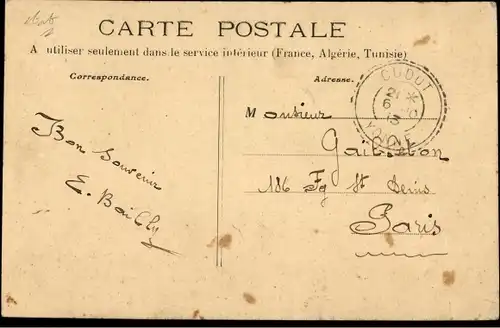 CARTE POSTALE
A utiliser seulement dans le service intérieur (France, Algérie, Tunisie)
Correspondance.
Adresse.
Bon Souvenir
E. Bailly
Monsieur
186 Fg St Denis
Paris
CUDOT
21
6
13
YONNE